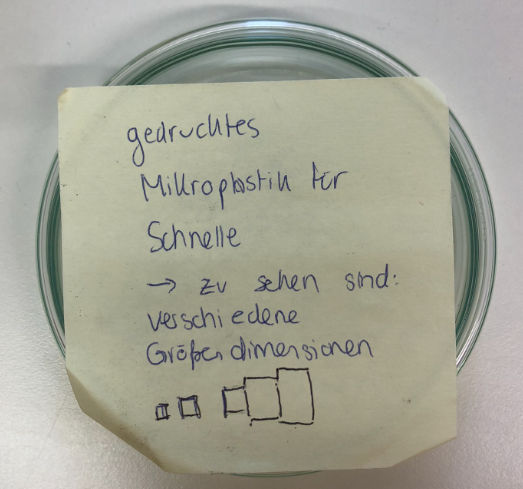 gedrucktes
Mikroplastik für
Schnelle
→ zu sehen sind:
verschiedene
Größendimensionen